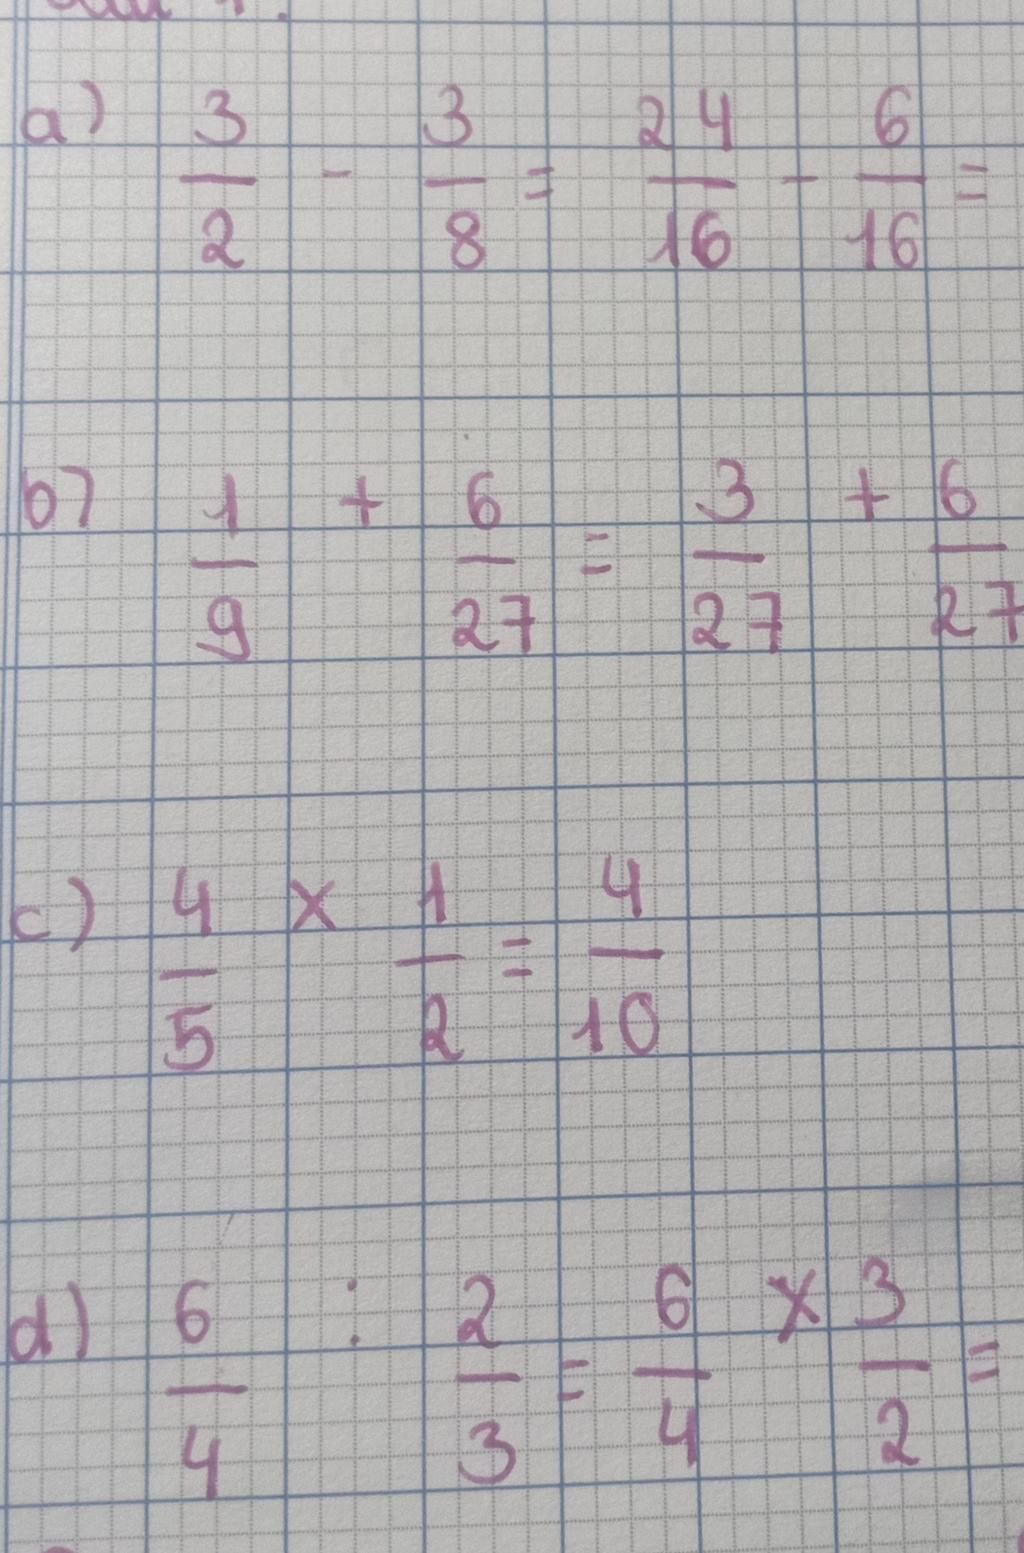 a) 3/2 - 3/8 = 24/16 - 6/16 =
b) 1/9 + 6/27 = 3/27 + 6/27
c) 4/5 x 1/2 = 4/10
d) 6/4 : 2/3 = 6/4 x 3/2 =